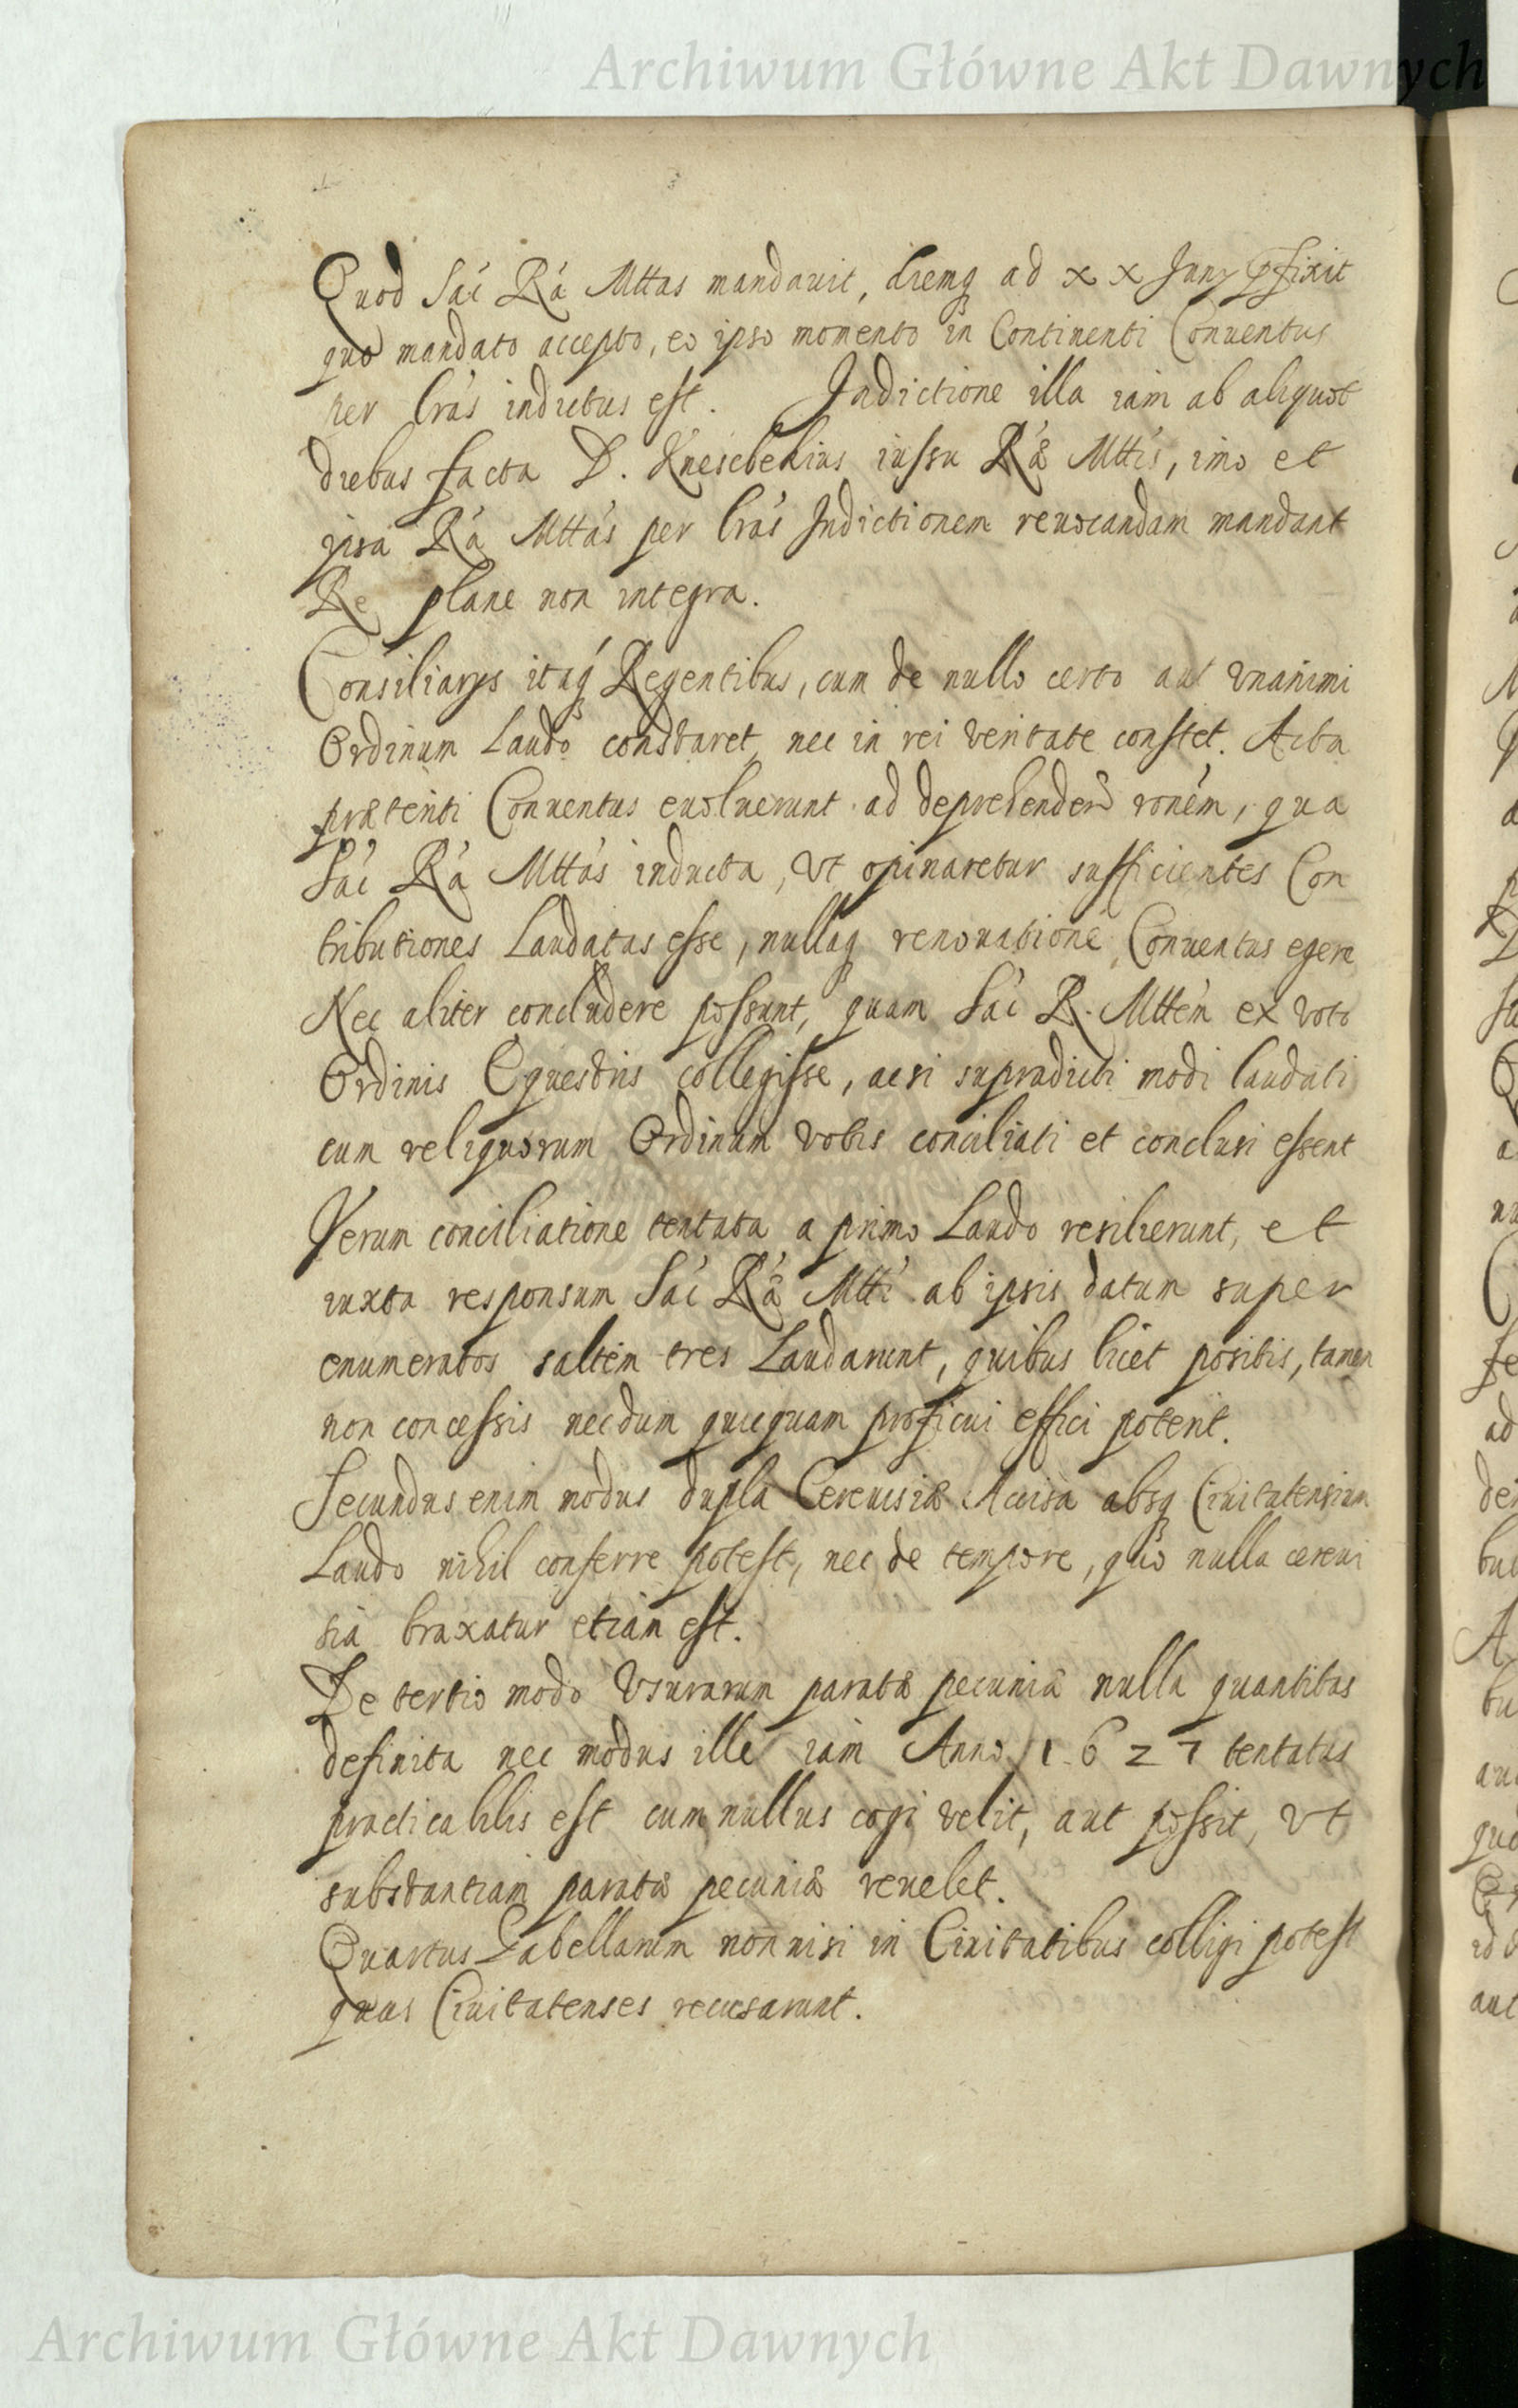 Archiwum Główne Akt Dawnych
Quod Sac Ra Mttas mandauit, diemq ad xx Junÿ pfixit
quo mandato accepto, eo ipso momento in Continenti Conuentus
per lras indictus est. Indictione illa iam ab aliquot
diebus facta D. Knesebekius iussu Ræ Mttis, imo et
ipsa Ra Mttas per lras Indictionem reuocandam mandant
Re plane non integra.
Consiliarÿs itaq Regentibus, cum de nullo certo aut vnanimi
Ordinum Laudo constaret, nec in rei veritate constet. Acta
præteriti Conuentus euoluerunt ad deprehendendã ronem, qua
Sac Ra Mttas inducta, vt opinaretur sufficientes Con
tributiones Laudatas esse, nullaq renouatione Conuentus egere
Nec aliter concludere possunt, quam Sac R. Mttem ex voto
Ordinis Equestris collegisse, acsi supradicti modi laudati
cum reliquorum Ordinum votis conciliati et conclusi essent
Verum conciliatione tentata a primo Laudo resilierunt, et
iuxta responsum Sac Ræ Mtti ab ipsis datum super
enumeratos saltem tres Laudarunt, quibus licet positis, tamen
non concessis necdum quicquam proficui effici poterit.
Secundus enim modus dupla Cereuisiæ Accisa absq Ciuitatensium
Laudo nihil conferre potest, nec de tempore, quo nulla cereui
sia braxatur etiam est.
De tertio modo Vsurarum paratæ pecuniæ nulla quantitas
definita nec modus ille iam Anno 1627 tentatus
practicabilis est cum nullus cogi velit, aut possit, vt
substantiam paratæ pecuniæ reuelet.
Quartus Gabellarum non nisi in Ciuitatibus colligi potest
quas Ciuitatenses recusarunt.
Archiwum Główne Akt Dawnych